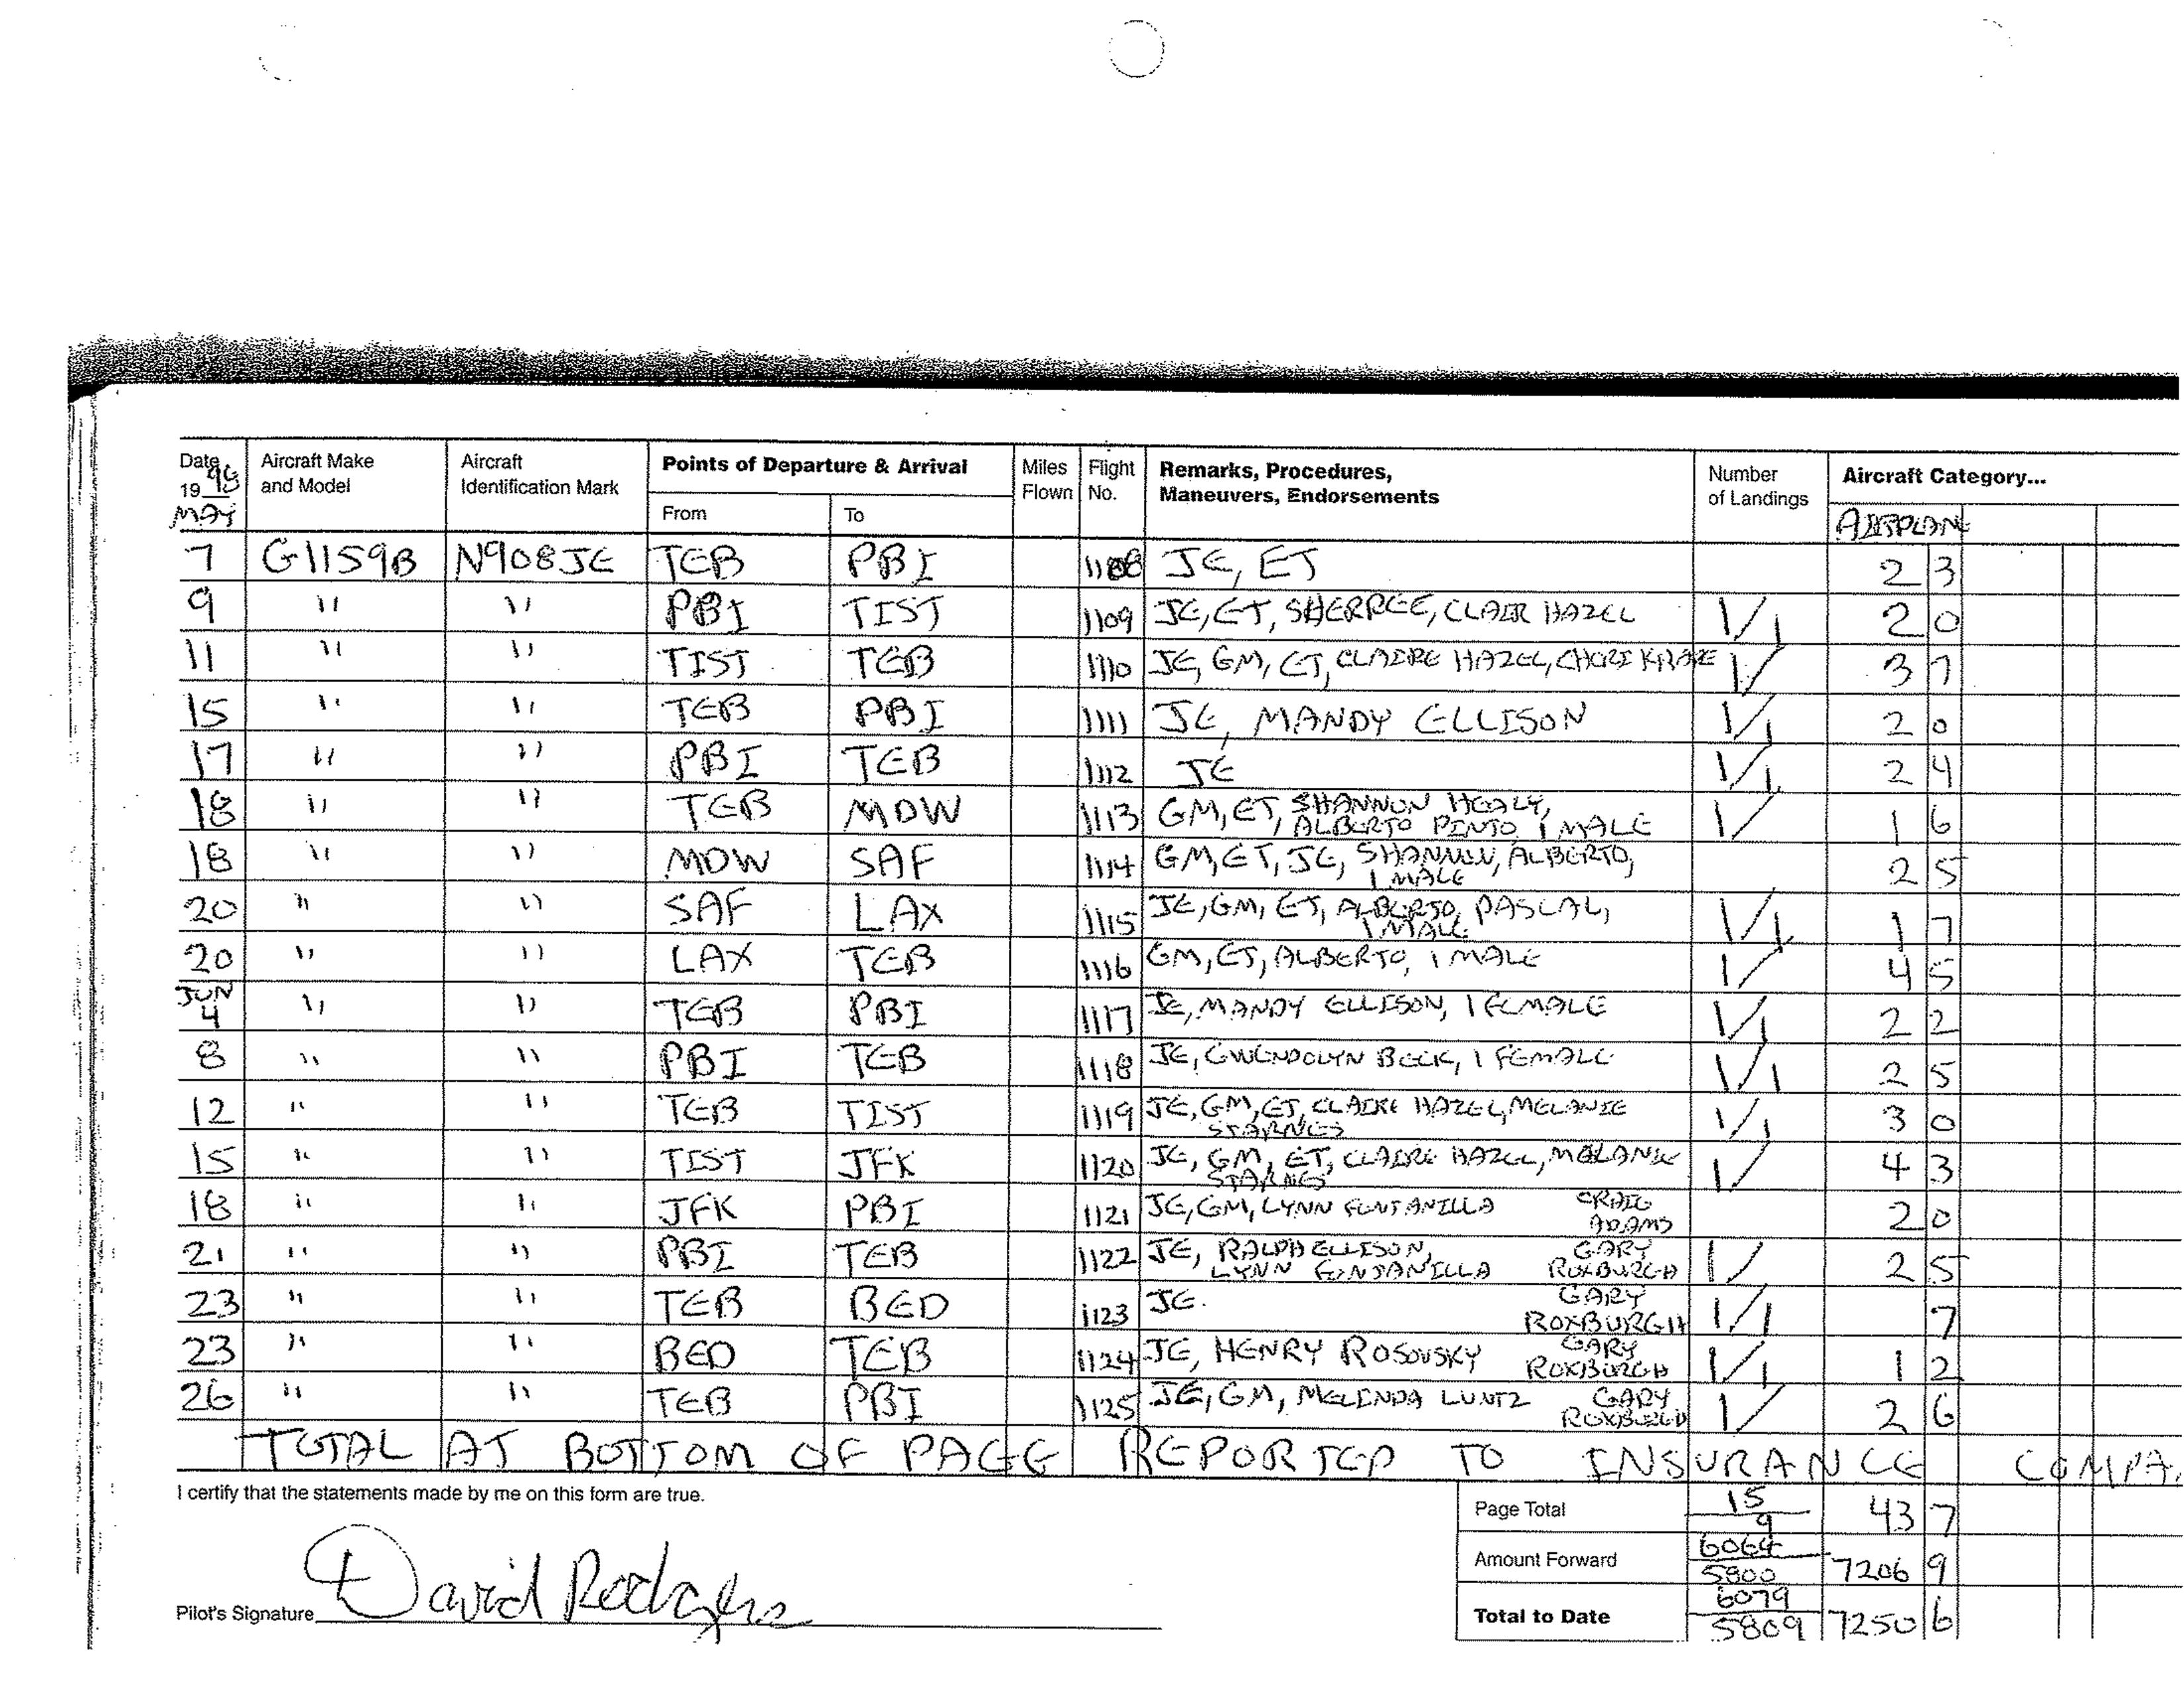 Date 19 98 MAY Aircraft Make and Model Aircraft Identification Mark Points of Departure & Arrival From To Miles Flown Flight No. Remarks, Procedures, Maneuvers, Endorsements Number of Landings Aircraft Category... AIRPLANE
7 G1159B N908JE TEB PBI 1108 JE, ET 2 3
9 " " PBI TIST 1109 JE, ET, SHERREE, CLAIR HAZEL 1/1 2 0
11 " " TIST TEB 1110 JE, GM, ET, CLAIRE HAZEL, 1/ 3 7
15 " " TEB PBI 1111 JE, MANDY ELLISON 1/1 2 0
17 " " PBI TEB 1112 JE 1/1 2 4
18 " " TEB MDW 1113 GM, ET, SHANNON HEALY, ALBERTO PINTO, 1 MALE 1/ 1 6
18 " " MDW SAF 1114 GM, ET, JE, SHANNON, ALBERTO, 1 MALE 2 5
20 " " SAF LAX 1115 JE, GM, ET, ALBERTO, PASCAL, 1 MALE 1/1 1 7
20 " " LAX TEB 1116 GM, ET, ALBERTO, 1 MALE 1/ 4 5
JUN 4 " " TEB PBI 1117 JE, MANDY ELLISON, 1 FEMALE 1/1 2 2
8 " " PBI TEB 1118 JE, GWENDOLYN BECK, 1 FEMALE 1/1 2 5
12 " " TEB TIST 1119 JE, GM, ET, CLAIRE HAZEL, MELANIE STARNES 1/1 3 0
15 " " TIST JFK 1120 JE, GM, ET, CLAIRE HAZEL, MELANIE STARNES 1/ 4 3
18 " " JFK PBI 1121 JE, GM, LYNN FONTANILLA CRAIG ADAMS 2 0
21 " " PBI TEB 1122 JE, RALPH ELLISON, LYNN FONTANILLA GARY ROXBURGH 1/ 2 5
23 " " TEB BED 1123 JE. GARY ROXBURGH 1/1 7
23 " " BED TEB 1124 JE, HENRY ROSOVSKY GARY ROXBURGH 1/1 1 2
26 " " TEB PBI 1125 JE, GM, MELINDA LUNTZ GARY ROXBURGH 1/ 2 6
TOTAL AT BOTTOM OF PAGE REPORTED TO INSURANCE COMPA.
I certify that the statements made by me on this form are true.
Page Total 15 9 43 7
Amount Forward 6064 5800 7206 9
Pilot's Signature David Rodgers
Total to Date 6079 5809 7250 6